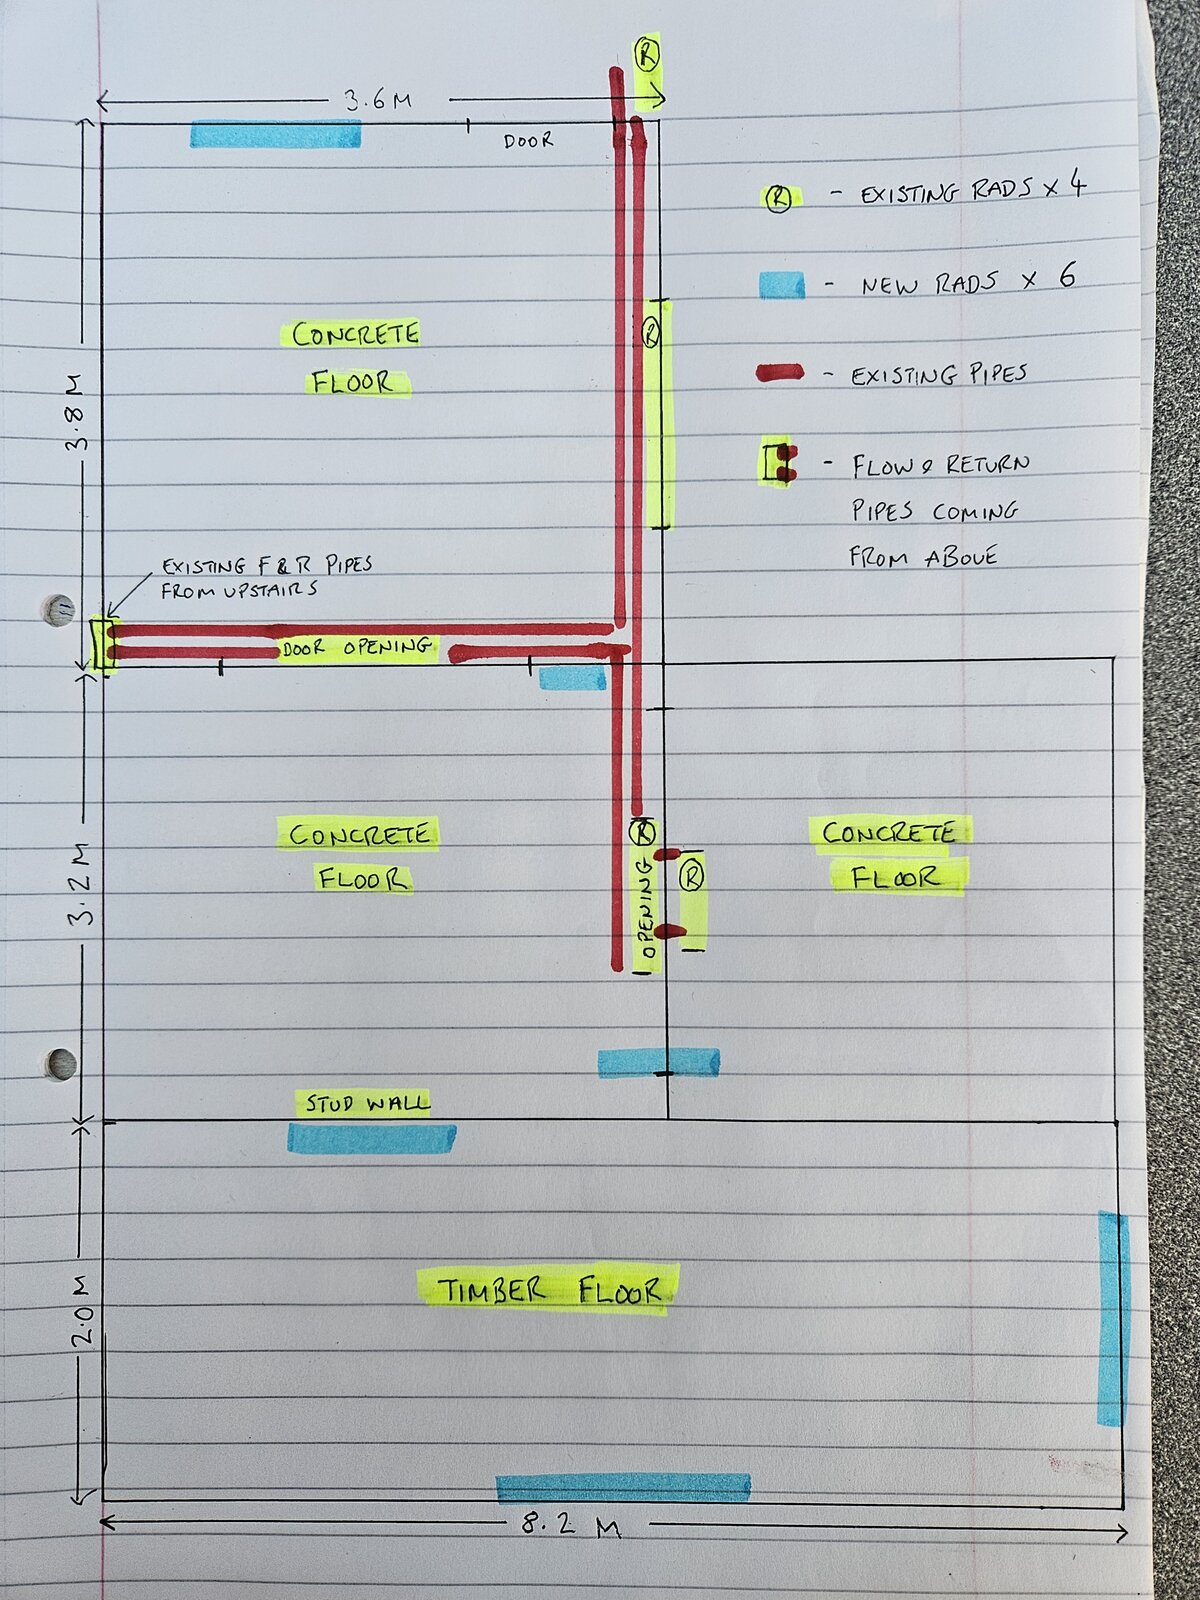 R
3.6M
DOOR
R - EXISTING RADS x 4
- NEW RADS x 6
R
CONCRETE
FLOOR
- EXISTING PIPES
3.8 M
- FLOW & RETURN
PIPES COMING
FROM ABOVE
EXISTING F & R PIPES
FROM UPSTAIRS
DOOR OPENING
CONCRETE
FLOOR
R
OPENING
R
CONCRETE
FLOOR
3.2 M
STUD WALL
TIMBER FLOOR
2.0 M
8.2 M